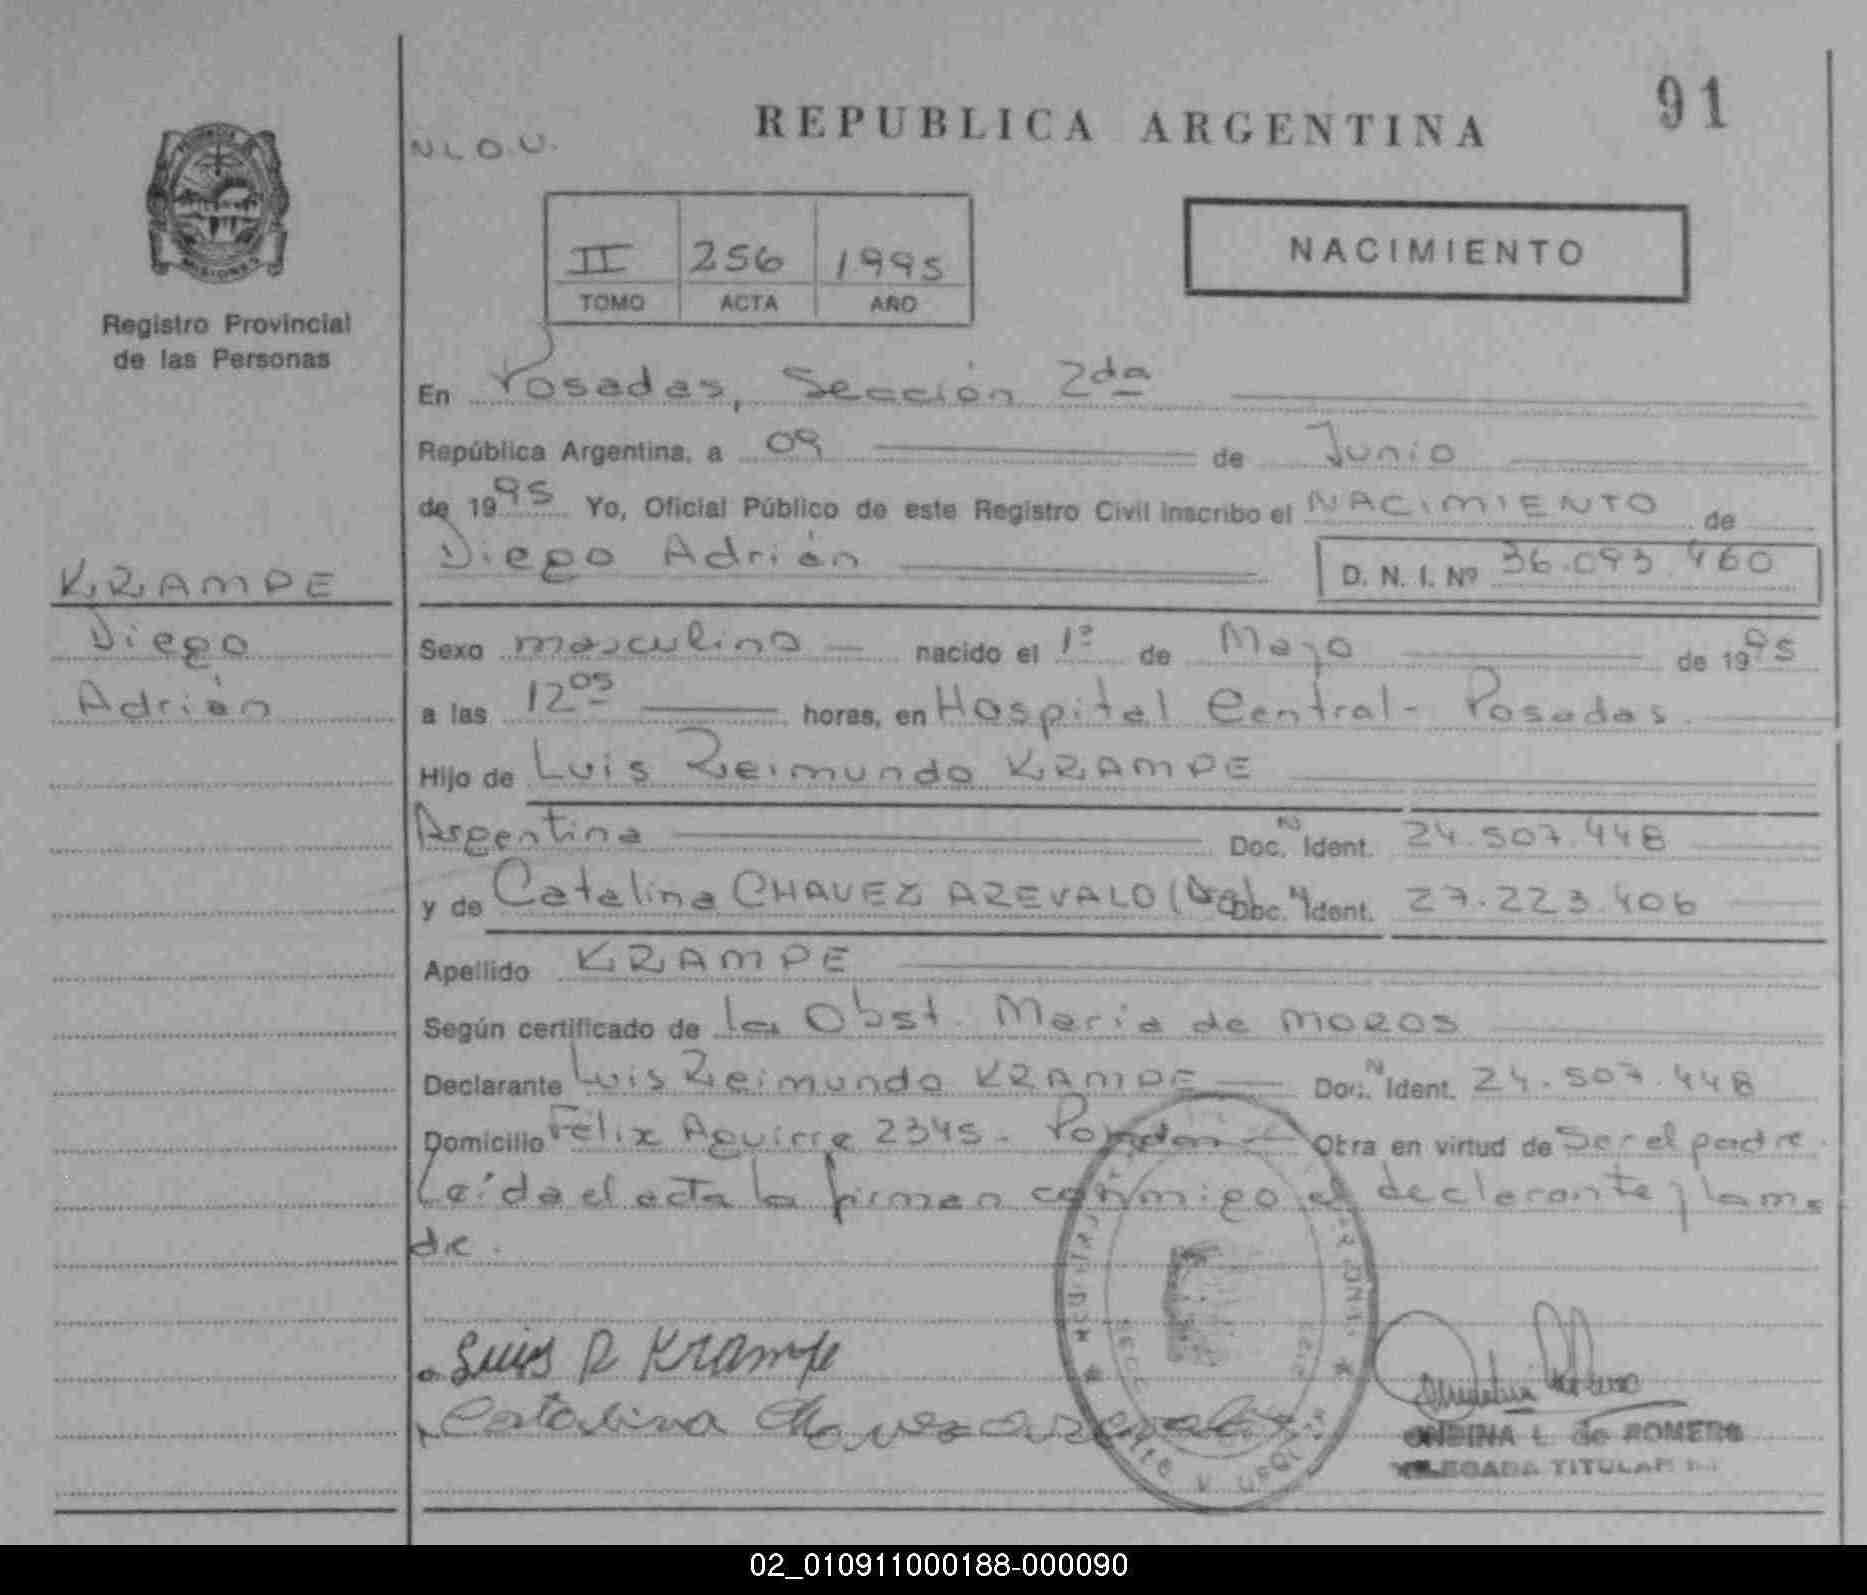 91
REPUBLICA ARGENTINA
N.L.O.U.
II 256 1995
TOMO ACTA AÑO
NACIMIENTO
MISIONES
Registro Provincial
de las Personas
En Posadas, Sección 2da
República Argentina, a 09 de Junio
de 1995 Yo, Oficial Público de este Registro Civil inscribo el NACIMIENTO de
Diego Adrián D. N. I. Nº 36.093.460
KRAMPE
Diego
Adrián
Sexo masculino nacido el 1º de Mayo de 1995
a las 12 05 horas, en Hospital Central - Posadas
Hijo de Luis Reimundo KRAMPE
Argentina Doc. N Ident. 24.507.448
y de Catalina CHAVEZ AREVALO Doc. N Ident. 27.223.406
Apellido KRAMPE
Según certificado de la Obst. Maria de MOROS
Declarante Luis Reimundo KRAMPE Doc. N Ident. 24.507.448
Domicilio Félix Aguirre 2345 - Posadas Obra en virtud de Ser el padre.
Leída el acta la firman conmigo el declarante y la ma
dre.
Luis R Krampe
Catalina Chavez arevalo
ONDINA L. de ROMERO
DELEGADA TITULAR
02_010911000188-000090